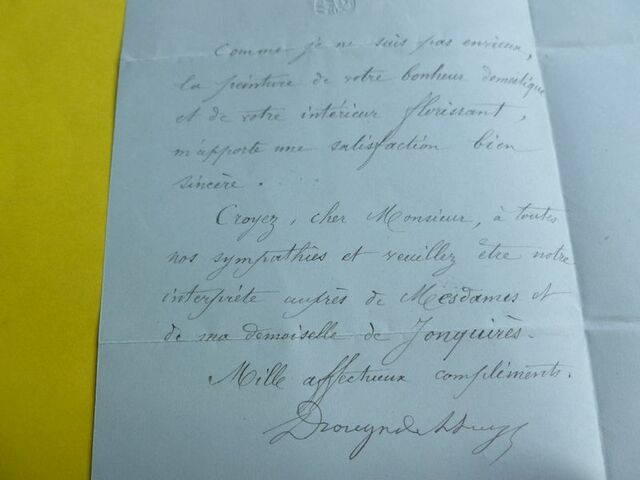 Comme je ne suis pas envieux,
la peinture de votre bonheur domestique
et de votre intérieur florissant,
m'apporte une satisfaction bien
sincère.
Croyez, cher Monsieur, à toutes
nos sympathies et veuillez être notre
interprète auprès de Mesdames et
de ma demoiselle de Jonquières.
Mille affectueux compliments.
Drouyn de Lhuys